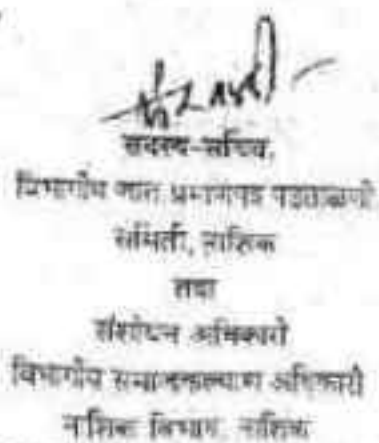 सदस्य-सचिव,
विभागीय जात प्रमाणपत्र पडताळणी
समिती, नाशिक
तथा
संशोधन अधिकारी
विभागीय समाजकल्याण अधिकारी
नाशिक विभाग, नाशिक